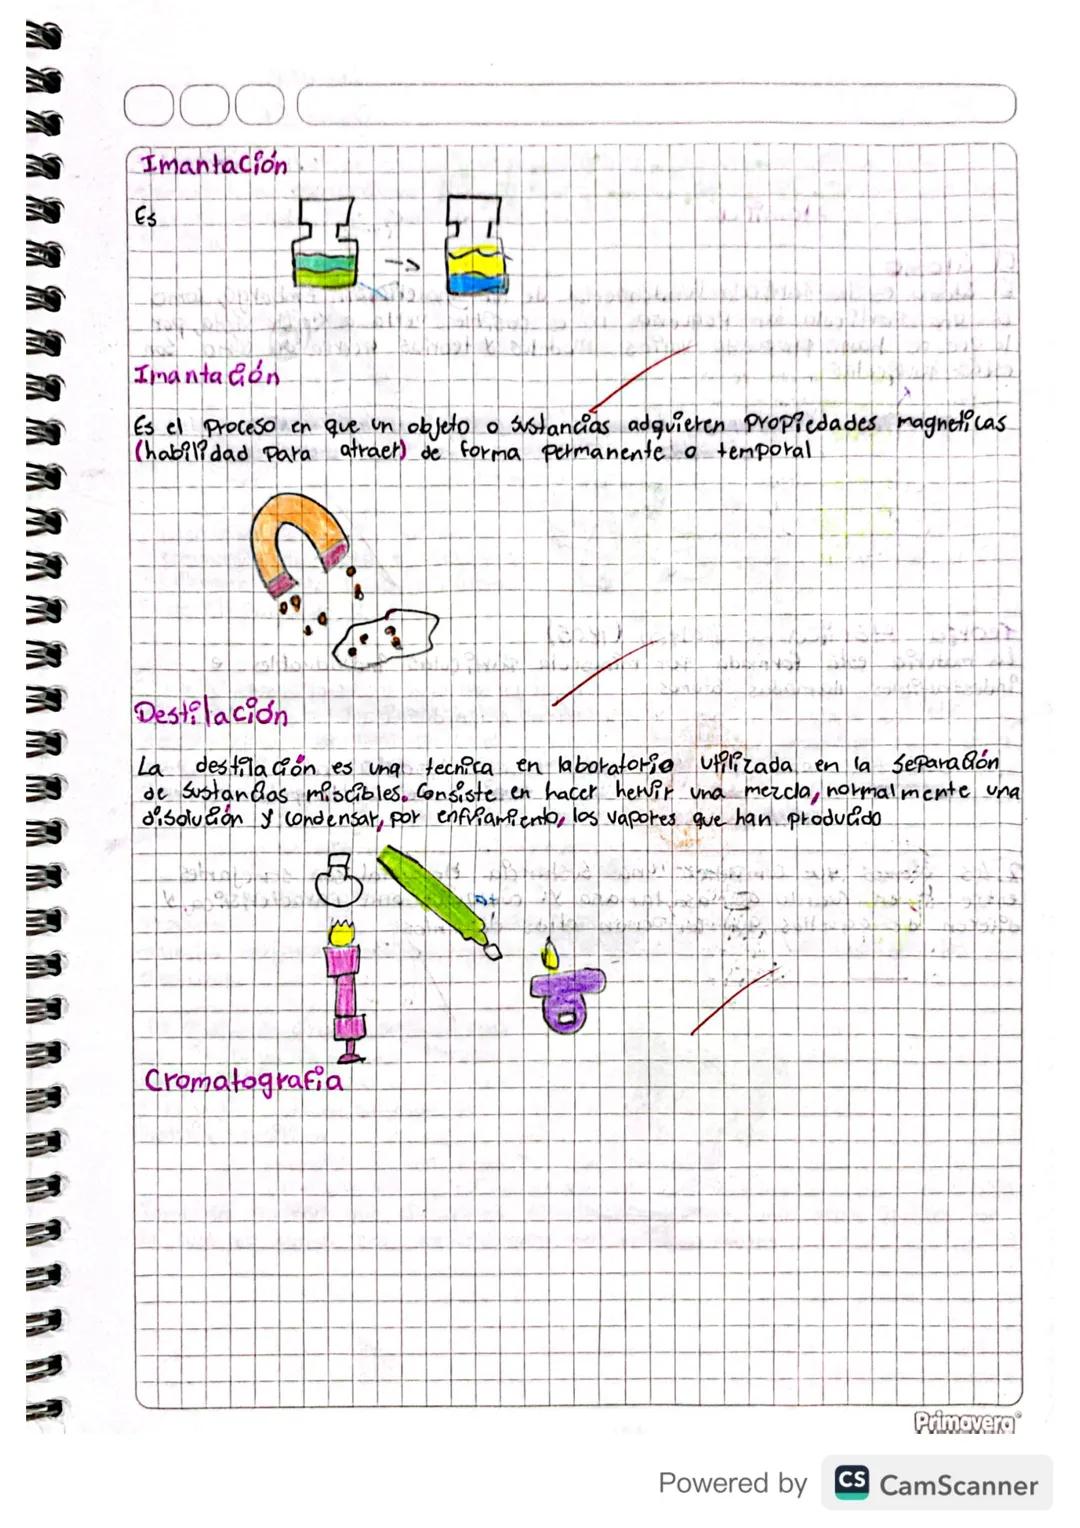 Imantación
Es
Imantación
Es el Proceso en que un objeto o sustancias adquieren Propiedades magneticas
(habilidad Para atraer) de forma permanente o temporal
Destilación
La destilación es una tecnica en laboratorio utilizada en la separación
de sustancias miscibles. Consiste en hacer hervir una mezcla, normalmente una
disolución y condensar, por enfriamiento, los vapores que han producido
Cromatografia
Primavera
Powered by CS CamScanner